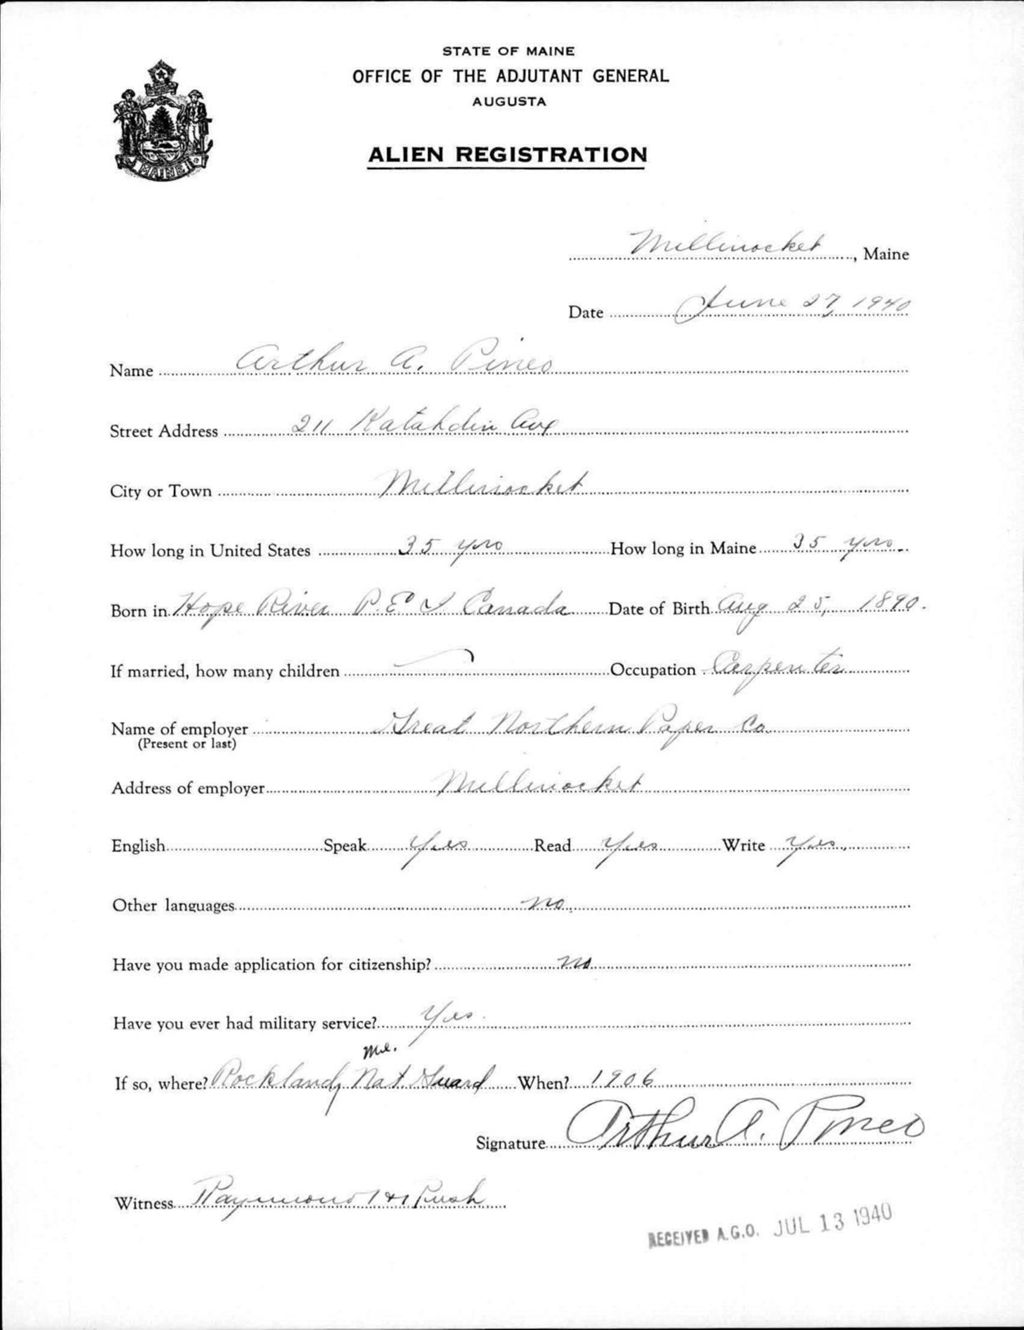 STATE OF MAINE
OFFICE OF THE ADJUTANT GENERAL
AUGUSTA
ALIEN REGISTRATION
MAINE
Millinocket, Maine
Date June 27, 1940
Name Arthur A. Pineo
Street Address 211 Katahdin Ave
City or Town Millinocket
How long in United States 35 yrs How long in Maine 35 yrs.
Born in Hope River P.E.I Canada Date of Birth Aug 25, 1890.
If married, how many children Occupation Carpenter
Name of employer Great Northern Paper Co.
(Present or last)
Address of employer Millinocket
English Speak Yes Read Yes Write Yes.
Other languages no.
Have you made application for citizenship? no
Have you ever had military service? Yes.
Me.
If so, where? Rockland, Nat Guard When? 1906
Signature Arthur A. Pineo
Witness Raymond Rush
RECEIVED A.G.O. JUL 13 1940